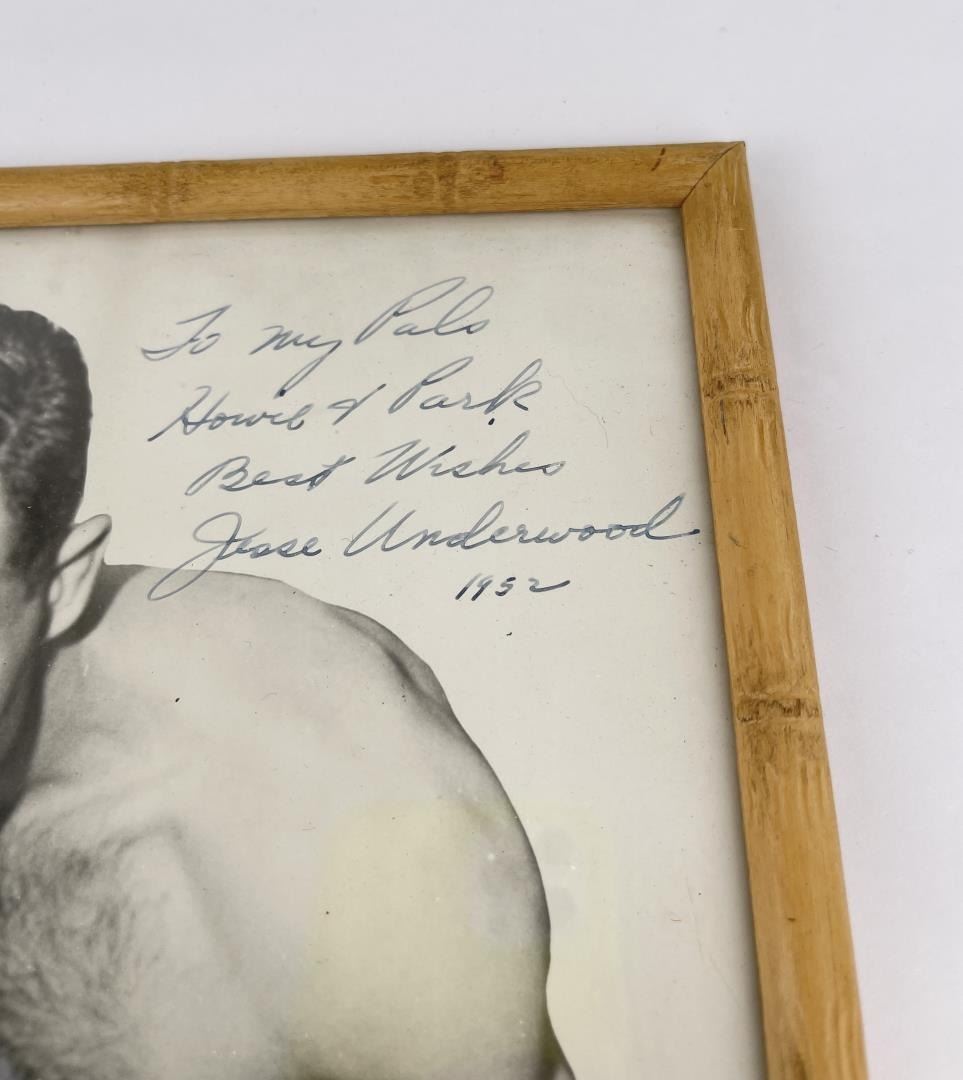 To my Pals
Howie & Park
Best Wishes
Jesse Underwood
1952